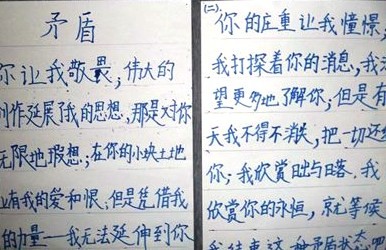 矛盾
你让我敬畏；伟大的
创作延展了我的思想，那是对你
无限地瑕想；在你的小块土地
有我的爱和恨、但是凭借我
的力量——我无法延伸到你
(二).
你的庄重让我憧憬，
我打探着你的消息，我
望更多地了解你；但是有
天我不得不消失，把一切还
你；我欣赏日出与日落，我
欣赏你的永恒，就等候
矛盾状态